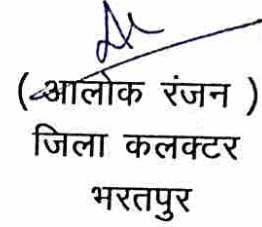 ( आलोक रंजन )
जिला कलक्टर
भरतपुर